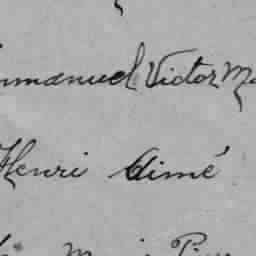 mmanuel Victor Ma
Henri Aimé